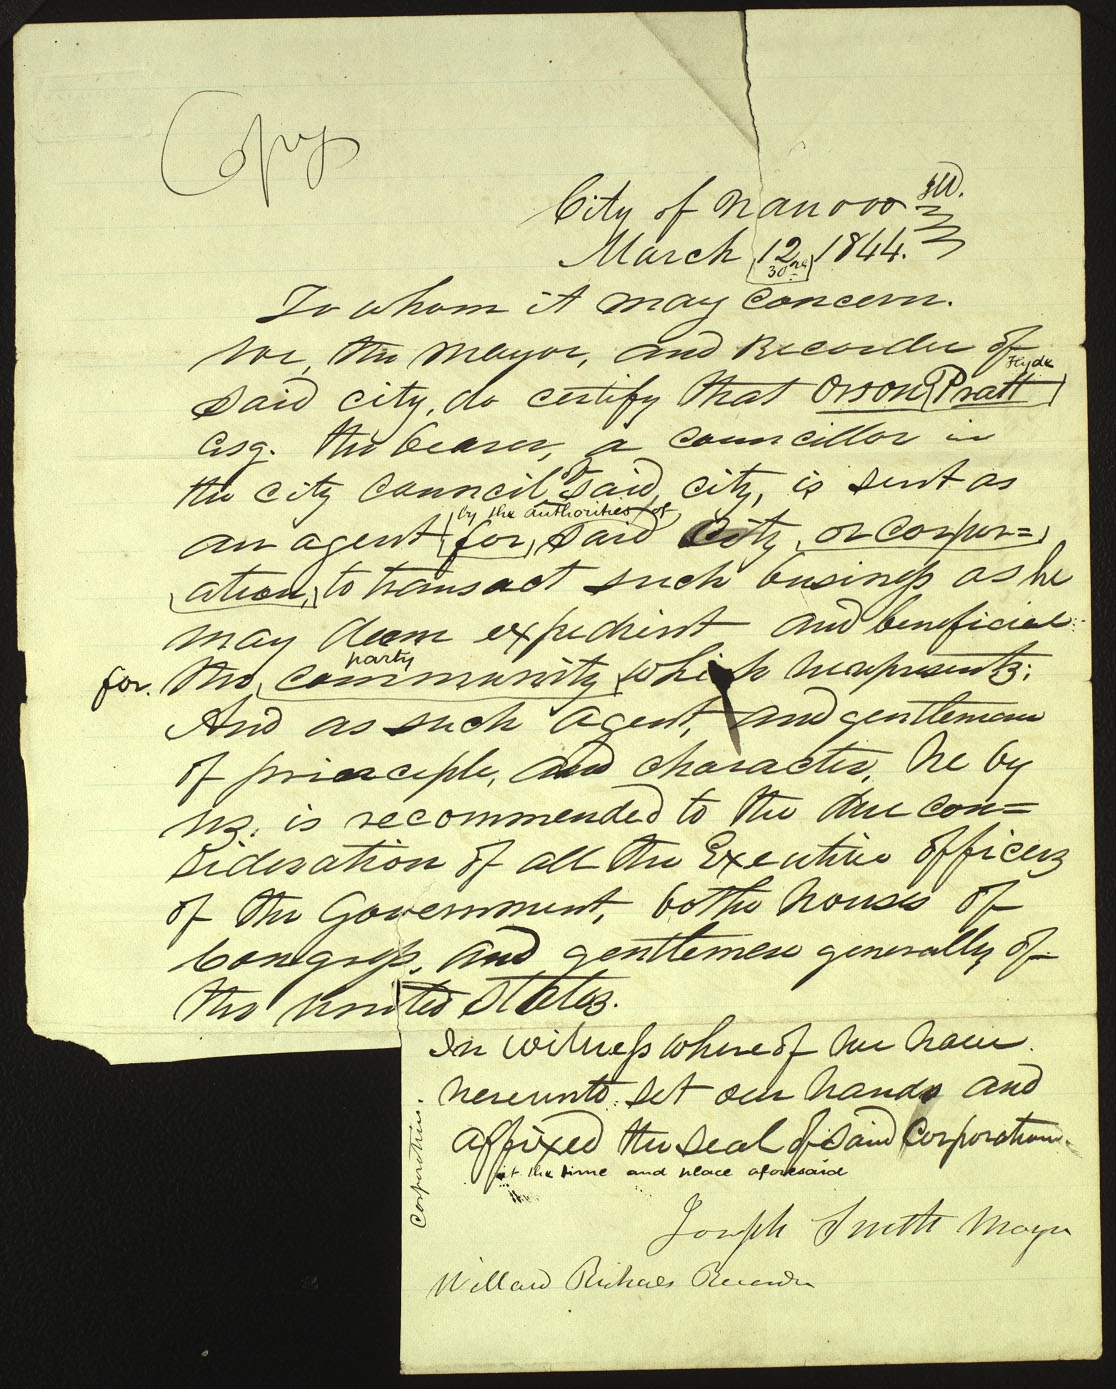 Copy
City of Nauvoo Ill.
March 12 1844.
30th
To whom it may concern.
We, the Mayor, and Recorder of
Hyde
said city, do certify that Orson Pratt
Esq. the bearer, a councillor in
of
the city council said city, is sent as
by the authorities of
an agent for, said City, or corpor=
ation, to transact such business as he
may deem expedient and beneficial
party
for. the community which he represents:
And as such agent, and gentleman
of principle, and character, he by
us, is recommended to the due con=
sideration of all the Executive officers
of the Government, both houses of
Congress, and gentlemen generally of
the United States.
In witness whereof we have
hereunto set our hands and
affixed the seal of said Corporation
at the time and place aforesaid
Corporation.
Joseph Smith Mayor
Willard Richards Recorder